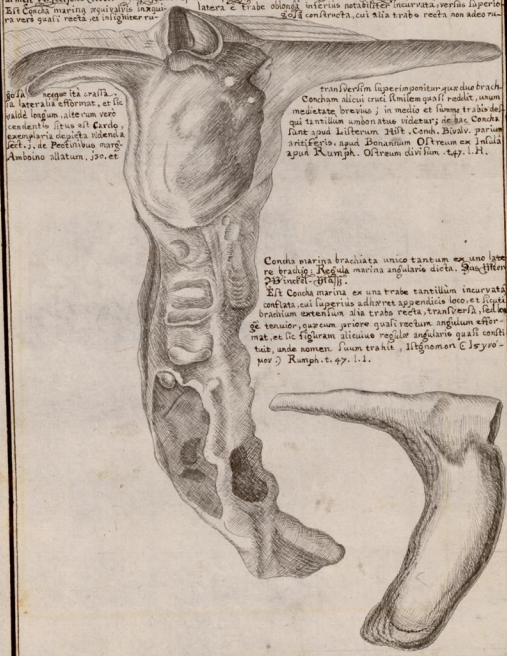 Est Concha marina æquivalvis inæqui-
latera e trabe oblonga inferius notabiliter incurvata, versus superio-
ra vers quasi recta, et insigniter ru-
gosa constructa, cui alia trabs recta non adeo ru-
gosa necque ita crassa
ia lateralia efformat, et sic
valde longum, alterum vero
cendentis situs est Cardo,
exemplaria depicta videnda
sect. j. de Pectinibus marg-
Amboino allatum, j30, et
transversim superimponitur, quæ duo brach-
Concham alicui cruci similem quasi reddit, unum
medietate brevius; in medio et summo trabis des-
qui tantillum umbonatus videtur; de hac Concha
sunt apud Listerum Hist. Conch. Bivalv. parium
aritiferis, apud Bonannum Ostreum ex Insula
apud Rumph. Ostreum divisum. t.47. l.H.
Concha marina brachiata unico tantum ex uno late
re brachio; Regula marina angularis dicta.
Winckel-Haff.
Est Concha marina ex una trabe tantillum incurvata
conflata, cui superius adhæret appendicis loco, et sicuti
brachium extensum alia trabs recta, transversa, sed lon
ge tenuior, quæ cum priore quasi rectum angulum effor-
mat, et sic figuram alicuius regulæ angularis quasi consti
tuit, unde nomen suum trahit, Isognomon
Rumph. t. 47. l.I.